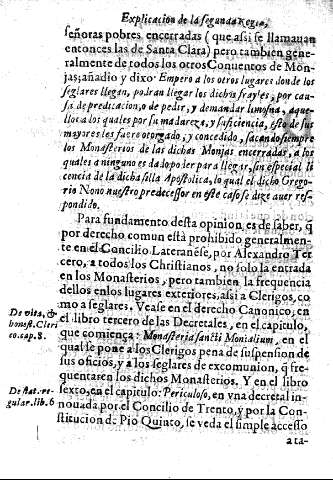 Explicacion de la segunda Regla,
señoras pobres encerradas (que assi se llamauan
entonces las de Santa Clara) pero tambien gene-
ralmente de todos los otros Conuentos de Mon-
jas; añadio y dixo. Empero a los otros lugares donde los
seglares llegan, podran llegar los dichos frayles, por cau-
sa de predicacion, o de pedir, y demandar limosna, aque-
llos a los quales por su madureza, y suficiencia, esto de sus
mayores les fuere otorgado, y concedido, sacando siempre
los Monasterios de las dichas Monjas encerradas, a los
quales a ninguno es dado poder para llegar, sin especial li
cencia de la dicha silla Apostolica, lo qual el dicho Grego-
rio Nono nuestro predecessor en este caso se dize auer res-
pondido.
Para fundamento desta opinion es de saber, q̃
por derecho comun està prohibido generalmen-
te en el Concilio Lateranẽse, por Alexandro Ter
cero, a todos los Christianos, no solo la entrada
en los Monasterios, pero tambien la frequencia
dellos en los lugares exteriores, assi a Clerigos, co
mo a seglares. Vease en el Derecho Canonico, en
el libro tercero de las Decretales, en el capitulo,
que comiença: Monasteria sancti Monialium, en el
qual se pone a los Clerigos pena de suspension de
sus oficios, y a los seglares de excomunion, q̃ fre-
quentarẽ los dichos Monasterios. Y en el libro
sexto, en el capitulo: Periculoso, en vna decretal in-
nouada por el Concilio de Trento, y por la Cons-
stitucion de Pio Quinto, se veda el simple accesso
a ta-
De vita, &
honest. Cleri
co. cap. 8.
De stat. re-
gular. lib. 6